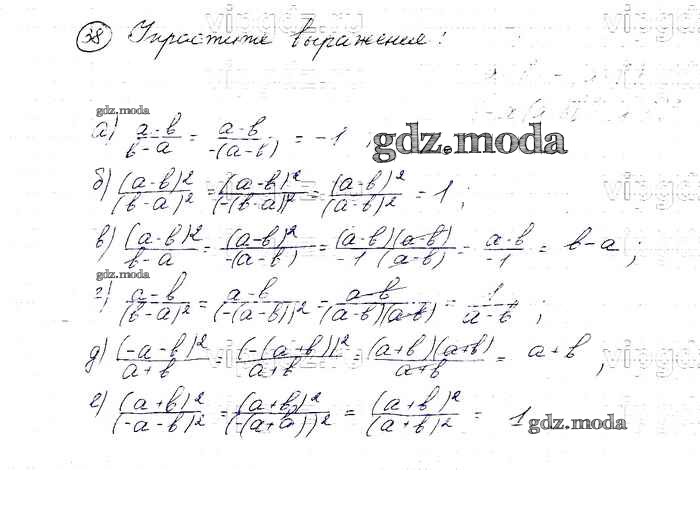 38 Упростите выражение:
gdz.moda
а) (a-b)/(b-a) = (a-b)/(-(a-b)) = -1 ,
gdz.moda
б) (a-b)²/(b-a)² = (a-b)²/(-(b-a))² = (a-b)²/(a-b)² = 1 ;
в) (a-b)²/(b-a) = (a-b)²/(-(a-b)) = (a-b)(a-b)/(-1 (a-b)) = (a-b)/(-1) = b-a ;
gdz.moda
г) (a-b)/(b-a)² = (a-b)/(-(a-b))² = (a-b)/((a-b)(a-b)) = 1/(a-b) ;
д) (-a-b)²/(a+b) = (-(a+b))²/(a+b) = (a+b)(a+b)/(a+b) = a+b ;
е) (a+b)²/(-a-b)² = (a+b)²/(-(a+a))² = (a+b)²/(a+b)² = 1
gdz.moda